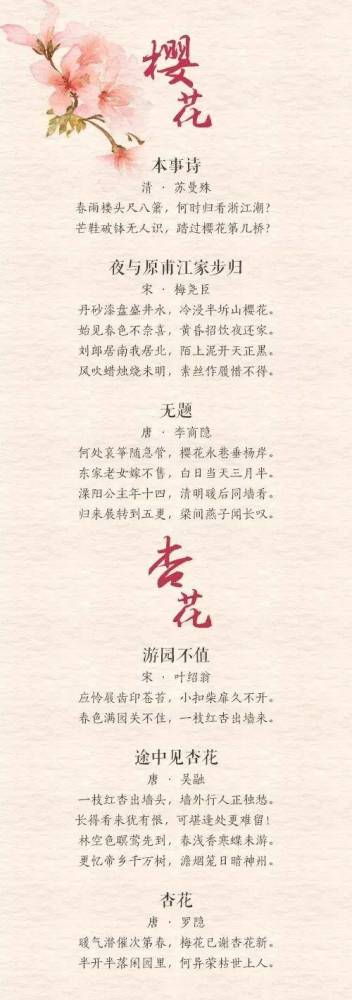 樱花
本事诗
清 · 苏曼殊
春雨楼头尺八箫，何时归看浙江潮？
芒鞋破钵无人识，踏过樱花第几桥？
夜与原甫江家步归
宋 · 梅尧臣
丹砂漆盘盛井水，冷浸半坼山樱花。
始见春色不奈喜，黄昏招饮夜还家。
刘郎居南我居北，陌上泥开天正黑。
风吹蜡烛烧未明，素丝作履惜不得。
无题
唐 · 李商隐
何处哀筝随急管，樱花永巷垂杨岸。
东家老女嫁不售，白日当天三月半。
溧阳公主年十四，清明暖后同墙看。
归来展转到五更，梁间燕子闻长叹。
杏花
游园不值
宋 · 叶绍翁
应怜屐齿印苍苔，小扣柴扉久不开。
春色满园关不住，一枝红杏出墙来。
途中见杏花
唐 · 吴融
一枝红杏出墙头，墙外行人正独愁。
长得看来犹有恨，可堪逢处更难留！
林空色暝莺先到，春浅香寒蝶未游。
更忆帝乡千万树，澹烟笼日暗神州。
杏花
唐 · 罗隐
暖气潜催次第春，梅花已谢杏花新。
半开半落闲园里，何异荣枯世上人。